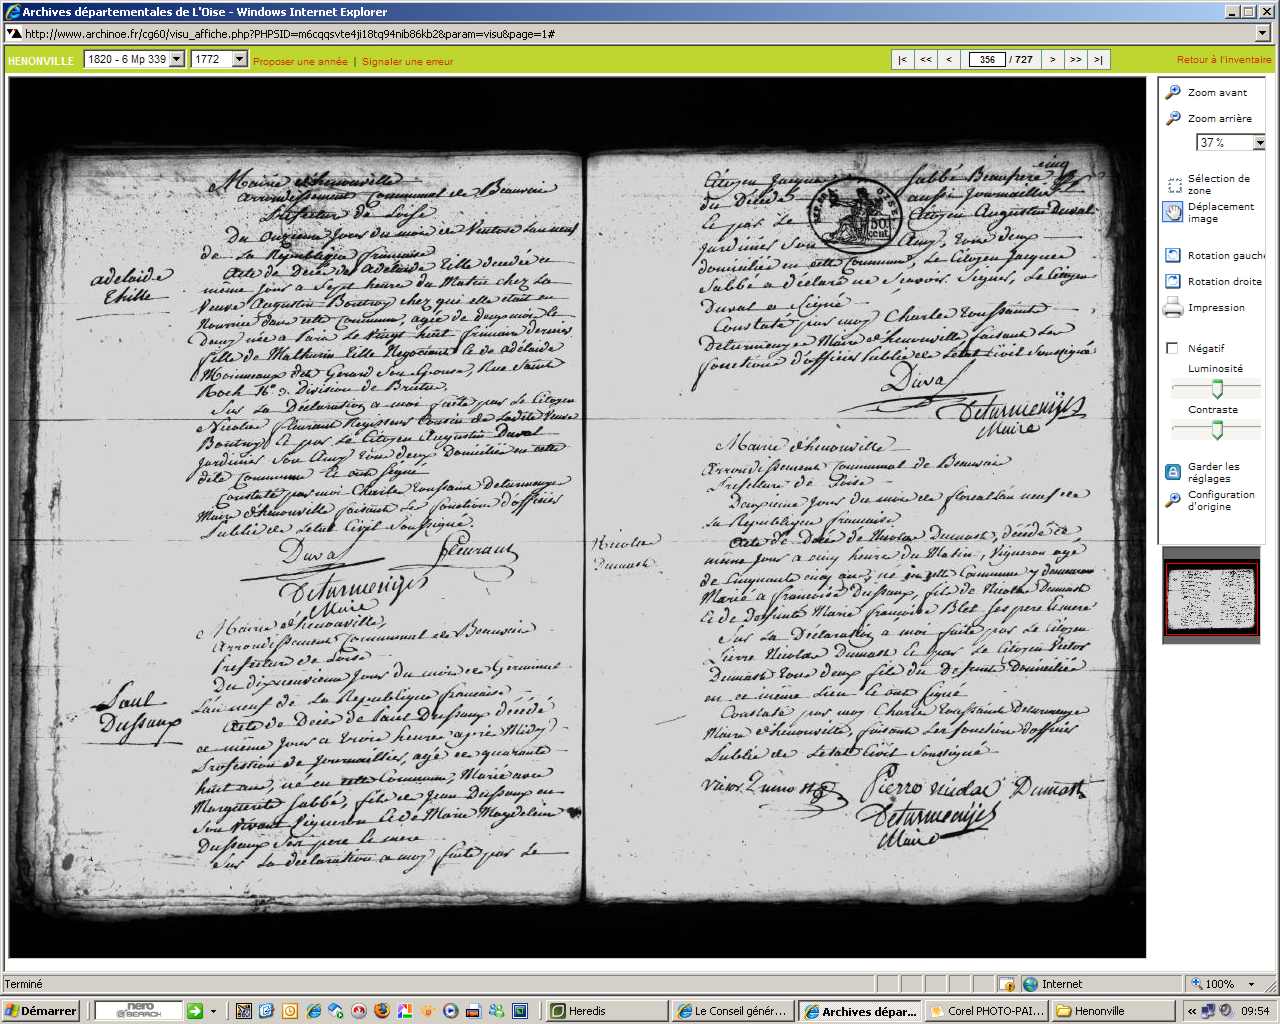 Archives départementales de L'Oise - Windows Internet Explorer
http://www.archinoe.fr/cg60/visu_affiche.php?PHPSID=m6cqqsvte4ji18tq94nib86kb2&param=visu&page=1#
HENONVILLE 1820 - 6 Mp 339 1772 Proposer une année | Signaler une erreur |< << < 356 / 727 > >> >| Retour à l'inventaire
Mairie d'henonville
arrondissement Communal de Beauvais
Prefecture de Loise
Du onzieme Jour du mois de Ventose Lan neuf
de La Republique francaise
adelaide
thille
Acte de Décé de Adelaide Tille decedée ce
même Jour a Sept heure du Matin chez La
Veuve Augustin Boutroy chez qui elle etait en
Nourrice dans cette Commune, agée de deux mois le
Demy née a Paris Le Vingt huit frimaire dernier
fille de Mathurin Tille Negociant et de adélaide
Moinneaux dit Gerard Son Epouse, Rue Saint
Roch N° 9. Division de Brutus.
Sur La Déclaration a moi faite par Le Citoyen
Nicolas fleurant Regisseur Cousin de Ladite Veuve
Boutroy, Et par Le Citoyen Augustin Duval
Jardinier Son Amy tous deux Domiciliés en cette
dite Commune Et ont Signé
Constaté par moi Charles toussaint Deturmenye
Maire d'henonville faisant Les fonctions d'officier
Public de Letat Civil Soussigné.
Duval fleurant
Deturmenyes
Maire
Mairie d'henonville,
Arrondissement Communal de Beauvais
Prefecture de Loise
Du dixneuvieme Jour du mois de Germinal
Lan neuf de La Republique francaise
Paul
Dussaux
Acte de Décé de Paul Dussaux decedé
ce même Jour a trois heure après Midy
Profession de Journaillier, agé de quarante
huit ans, né en cette Commune, Marié avec
Marguerite Labbé, fils de Jean Dussaux en
Son vivant Vigneron et de Marie Magdeleine
Dussaux Ses pere et mere
Sur La declaration a moy faite par Le
cinq
Citoyen Jacques Labbé Beaufrere
du Décédé aussi Journaillier
Et par Le Citoyen Augustin Duval
Jardinier Son Amy, tous deux
domiciliés en cette Commune, Le Citoyen Jacques
Labbé a déclaré ne Scavoir Signer, Le Citoyen
Duval a Signé
Constaté par moy Charles toussaint
Deturmenye Maire d'henonville faisant Les
fonctions d'officier Public de Letat Civil Soussigné
OISE
50
cent.
Duval
Deturmenyes
Maire
Mairie d'henonville
Arrondissement Communal de Beauvais
Prefecture de Loise
Deuxieme Jour du mois de floreal Lan neuf de
La Republique francaise
Nicolas
Dumast
Acte de Décé de Nicolas Dumast, décédé ce
même Jour a cinq heure du Matin, Vigneron agé
de Cinquante cinq ans, né en cette Commune y demeurant
Marié a francoise Dussaux, fils de Nicolas Dumast
et de deffunte Marie francoise Blet Ses pere et mere
Sur La Declaration a moi faite par Le Citoyen
Pierre Nicolas Dumast Et par Le Citoyen Victor
Dumast tous deux fils du Deffunt Domiciliés
en ce même Lieu Et ont Signé
Constaté par moy Charles toussaint Deturmenye
Maire d'henonville, faisant Les fonctions d'officier
Public de Letat Civil Soussigné
Pierre nicolas Dumast
Deturmenyes
Maire
Zoom avant
Zoom arrière
37 %
Sélection de
zone
Déplacement
image
Rotation gauche
Rotation droite
Impression
Négatif
Luminosité
Contraste
Garder les
réglages
Configuration
d'origine
Terminé Internet 100%
Démarrer nero SEARCH Heredis Le Conseil génér... Archives dépar... Corel PHOTO-PAI... Henonville 09:54